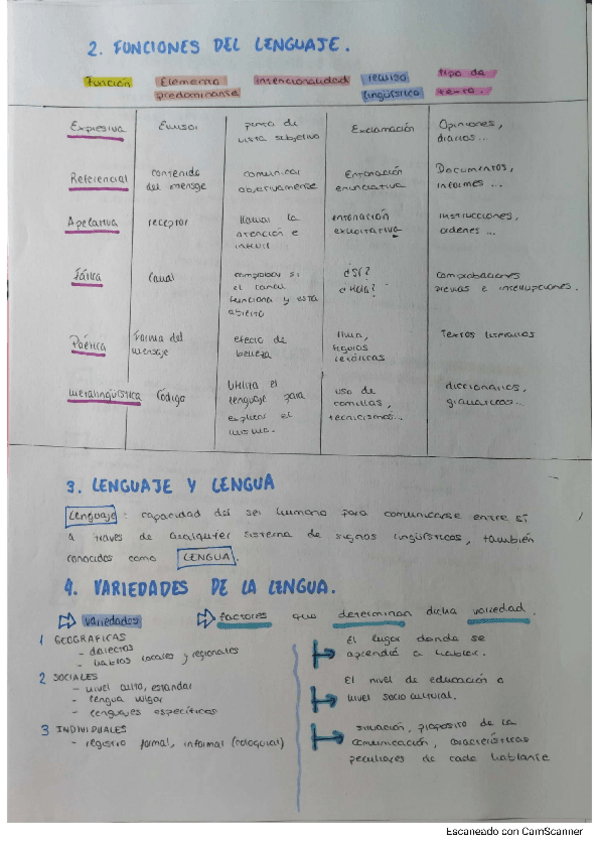 2. FUNCIONES DEL LENGUAJE.
Función Elemento predominante intencionalidad recurso lingüístico tipo de texto.
Expresiva Emisor punto de vista subjetivo Exclamación Opiniones, diarios...
Referencial contenido del mensaje comunicar objetivamente Entonación enunciativa Documentos, informes ...
Apelativa receptor llamar la atención e influir entonación exhortativa instrucciones, ordenes ...
Fática Canal comprobar si el canal funciona y está abierto ¿Sí? ¿Hola? comprobaciones previas e interrupciones.
Poética Forma del mensaje efecto de belleza rima, figuras retóricas Textos literarios
Metalingüística Código Utiliza el lenguaje para explicar el mismo. uso de comillas, tecnicismos... diccionarios, gramáticas...
3. LENGUAJE Y LENGUA
Lenguaje: capacidad del ser humano para comunicarse entre sí
a través de cualquier sistema de signos lingüísticos, también
conocidos como LENGUA.
4. VARIEDADES DE LA LENGUA.
variedades factores que determinan dicha variedad.
1 GEOGRAFICAS
- dialectos
- hablas locales y regionales
El lugar donde se
aprendió a hablar.
2 SOCIALES
- nivel culto, estandar
- lengua vulgar
- lenguajes específicos
El nivel de educación o
nivel socio cultural.
3 INDIVIDUALES
- registro formal, informal (coloquial)
situación, proposito de la
comunicación, características
peculiares de cada hablante
Escaneado con CamScanner